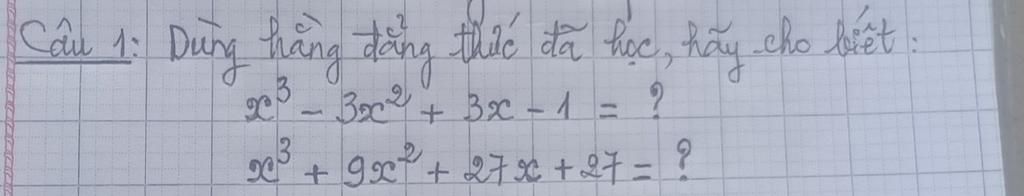 Câu 1: Dùng hằng đẳng thức đã học, hãy cho biết:
x³ - 3x² + 3x - 1 = ?
x³ + 9x² + 27x + 27 = ?